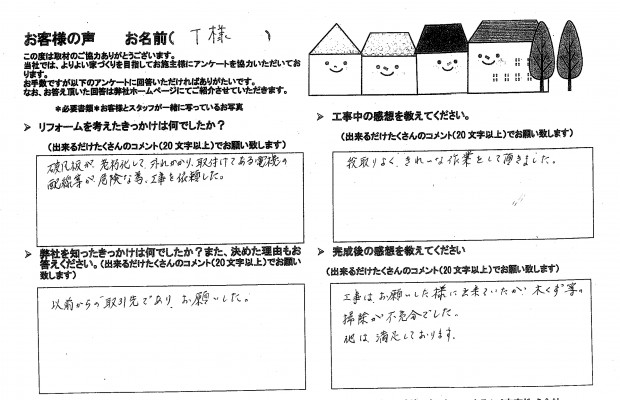 お客様の声 お名前( T様 )
この度は取材のご協力ありがとうございます。
当社では、よりよい家づくりを目指してお施主様にアンケートを協力いただいております。
お手数ですが以下のアンケートに回答いただければありがたいです。
なお、お答え頂いた回答は弊社ホームページにてご紹介させていただきます。
*必要書類*お客様とスタッフが一緒に写っているお写真
➢ リフォームを考えたきっかけは何でしたか?
(出来るだけたくさんのコメント(20文字以上)でお願い致します)
破風板が、老朽化して、外れかかり、取付けてある電線の
配線等が、危険な為、工事を依頼した。
➢ 弊社を知ったきっかけは何でしたか?また、決めた理由もお
答えください。(出来るだけたくさんのコメント(20文字以上)でお願い
致します)
以前からの取引先であり、お願いした。
➢ 工事中の感想を教えてください。
(出来るだけたくさんのコメント(20文字以上)でお願い致します)
段取りよく、きれーな作業をして頂きました。
➢ 完成後の感想を教えてください
(出来るだけたくさんのコメント(20文字以上)でお願い致します)
工事は、お願いした様に出来ていたが、木くず等の
掃除が不充分でした。
他は、満足しております。